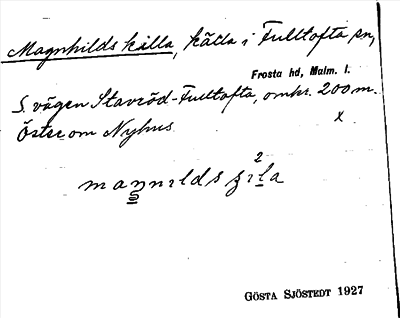 Magnhilds källa, källa i Fulltofta sn,
Frosta hd, Malm. l.
S. vägen Stavröd-Fulltofta, omkr. 200 m.
öster om Nyhus. x
Gösta Sjöstedt 1927